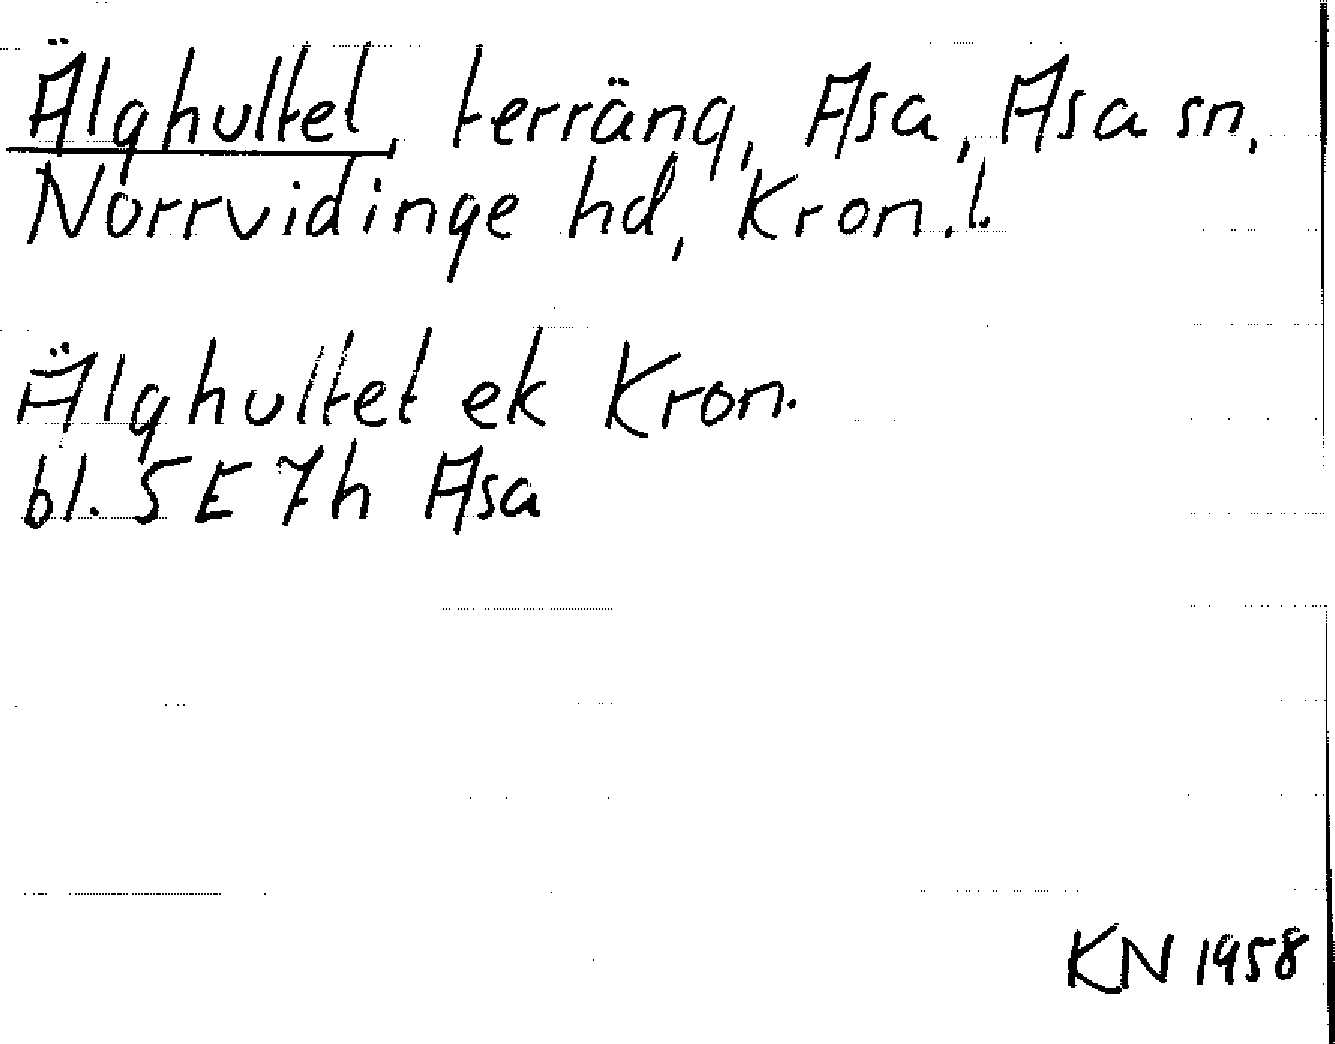 Älghultet, terräng, Asa, Asa sn,
Norrvidinge hd, Kron.l.
Älghultet ek Kron.
bl. 5E 7h Asa
KN 1958